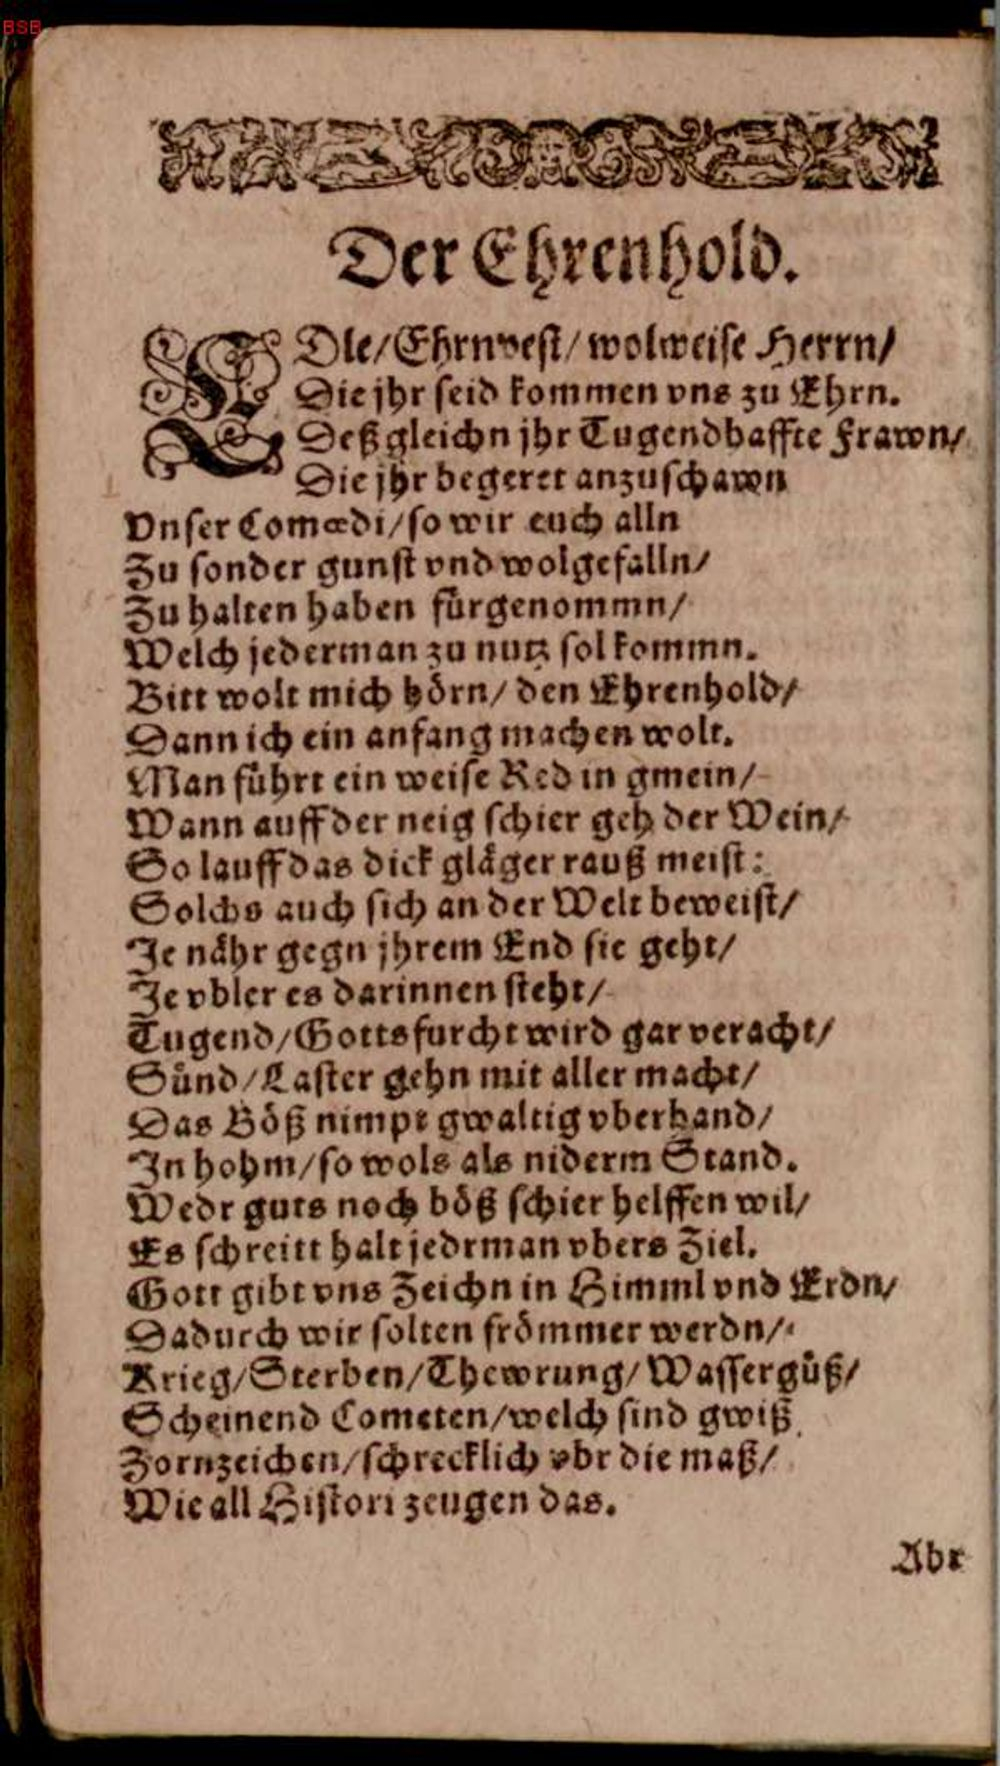 BSB
Der Ehrenhold.
EDle/Ehrnvest/wolweise Herrn/
Die jhr seid kommen vns zu Ehrn.
Deß gleichn jhr Tugendhaffte Frawn/
Die jhr begeret anzuschawn
Vnser Comœdi/so wir euch alln
Zu sonder gunst vnd wolgefalln/
Zu halten haben fürgenommn/
Welch jederman zu nutz sol kommn.
Bitt wolt mich hörn/den Ehrenhold/
Dann ich ein anfang machen wolt.
Man führt ein weise Red in gmein/
Wann auff der neig schier geh der Wein/
So lauff das dick gläger rauß meist:
Solchs auch sich an der Welt beweist/
Je nähr gegn jhrem End sie geht/
Je vbler es darinnen steht/
Tugend/Gottsfurcht wird gar veracht/
Sünd/Laster gehn mit aller macht/
Das Böß nimpt gwaltig vberhand/
In hohm/so wols als niderm Stand.
Wedr guts noch böß schier helffen wil/
Es schreitt halt jedrman vbers Ziel.
Gott gibt vns Zeichn in Himml vnd Erdn/
Dadurch wir solten frömmer werdn/
Krieg/Sterben/Thewrung/Wassergüß/
Scheinend Cometen/welch sind gwiß
Zornzeichen/schrecklich vbr die maß/
Wie all Histori zeugen das.
Abr